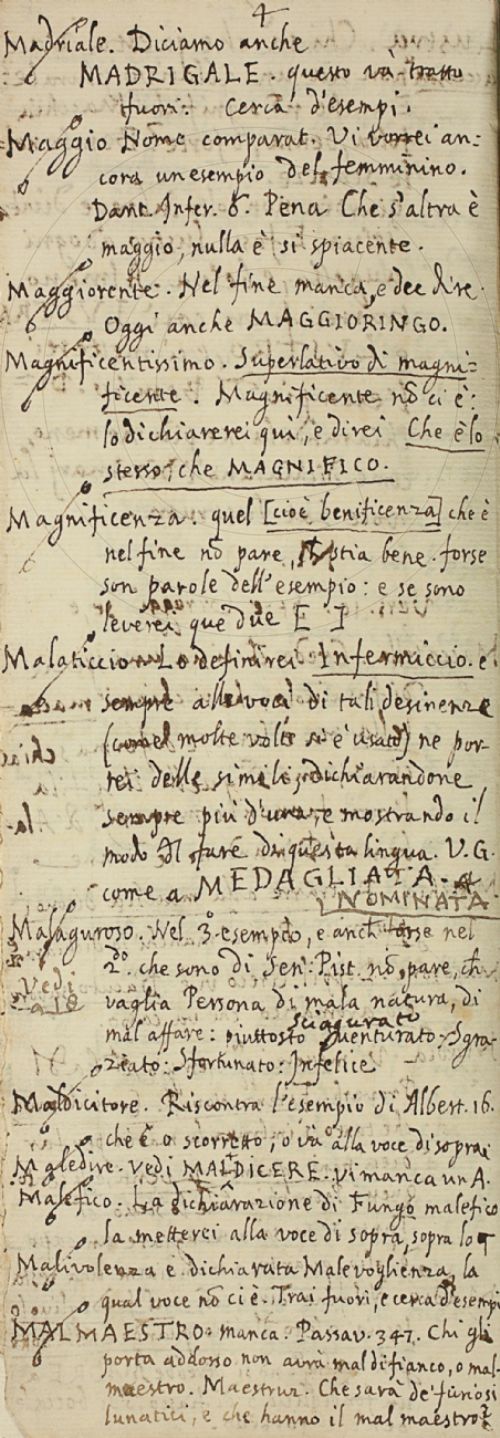 4
Madriale. Diciamo anche
MADRIGALE. questo và tratto
fuori. Cerca d'esempi.
Maggio Nome comparat. Vi vorrei an-
cora un esempio del femminino.
Dant. Infer. 6. Pena Che s'altra è
maggio, nulla è si spiacente.
Maggiorente. Nel fine manca, e dee dire.
Oggi anche MAGGIORINGO.
Magnificentissimo. Superlativo di magni-
ficente. Magnificente nō ci è:
lo dichiarerei qui, e direi Che è lo
stesso, che MAGNIFICO.
Magnificenza. quel [cioè benificenza] che è
nel fine nō pare, stia bene. forse
son parole dell'esempio: e se sono
leverei que due E I
Malaticcio Lo definirei Infermiccio. e
sempre alle voci di tali desinenze
(come molte volte si è usato) ne por-
rei delle simili, dichiarandone
sempre più d'una, e mostrando il
modo di fare di questa lingua. V.G.
come a MEDAGLIATA.
NOMINATA
Malaguroso. Nel 3º esempio, e anch forse nel
2º. che sono di Sen. Pist. nō pare, ch
Vedi
a 18
vaglia Persona di mala natura, di
mal affare: piuttosto sciagurato Sventurato: Sgra-
ziato: Sfortunato: Infelice
Maldicitore. Riscontra l'esempio di Albert. 16.
che è o scorretto, o và alla voce di sopra
Maledire. Vedi MALDICERE. vi manca un A.
Malefico. La dichiarazione di Fungo malefico
la metterei alla voce di sopra, sopra lo
Malivolenza è dichiarata Malevoglienza, la
qual voce nō ci è. Trai fuori, e cerca d'esempi
MALMAESTRO: manca. Passav. 347. Chi gli
porta addosso non avrà mal di fianco, o mal-
maestro. Maestruz. Che sarà de' furiosi
lunatici, e che hanno il mal maestro?